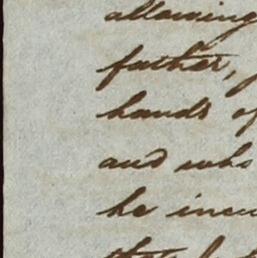 allowing
father,
hands of
and who
he incu